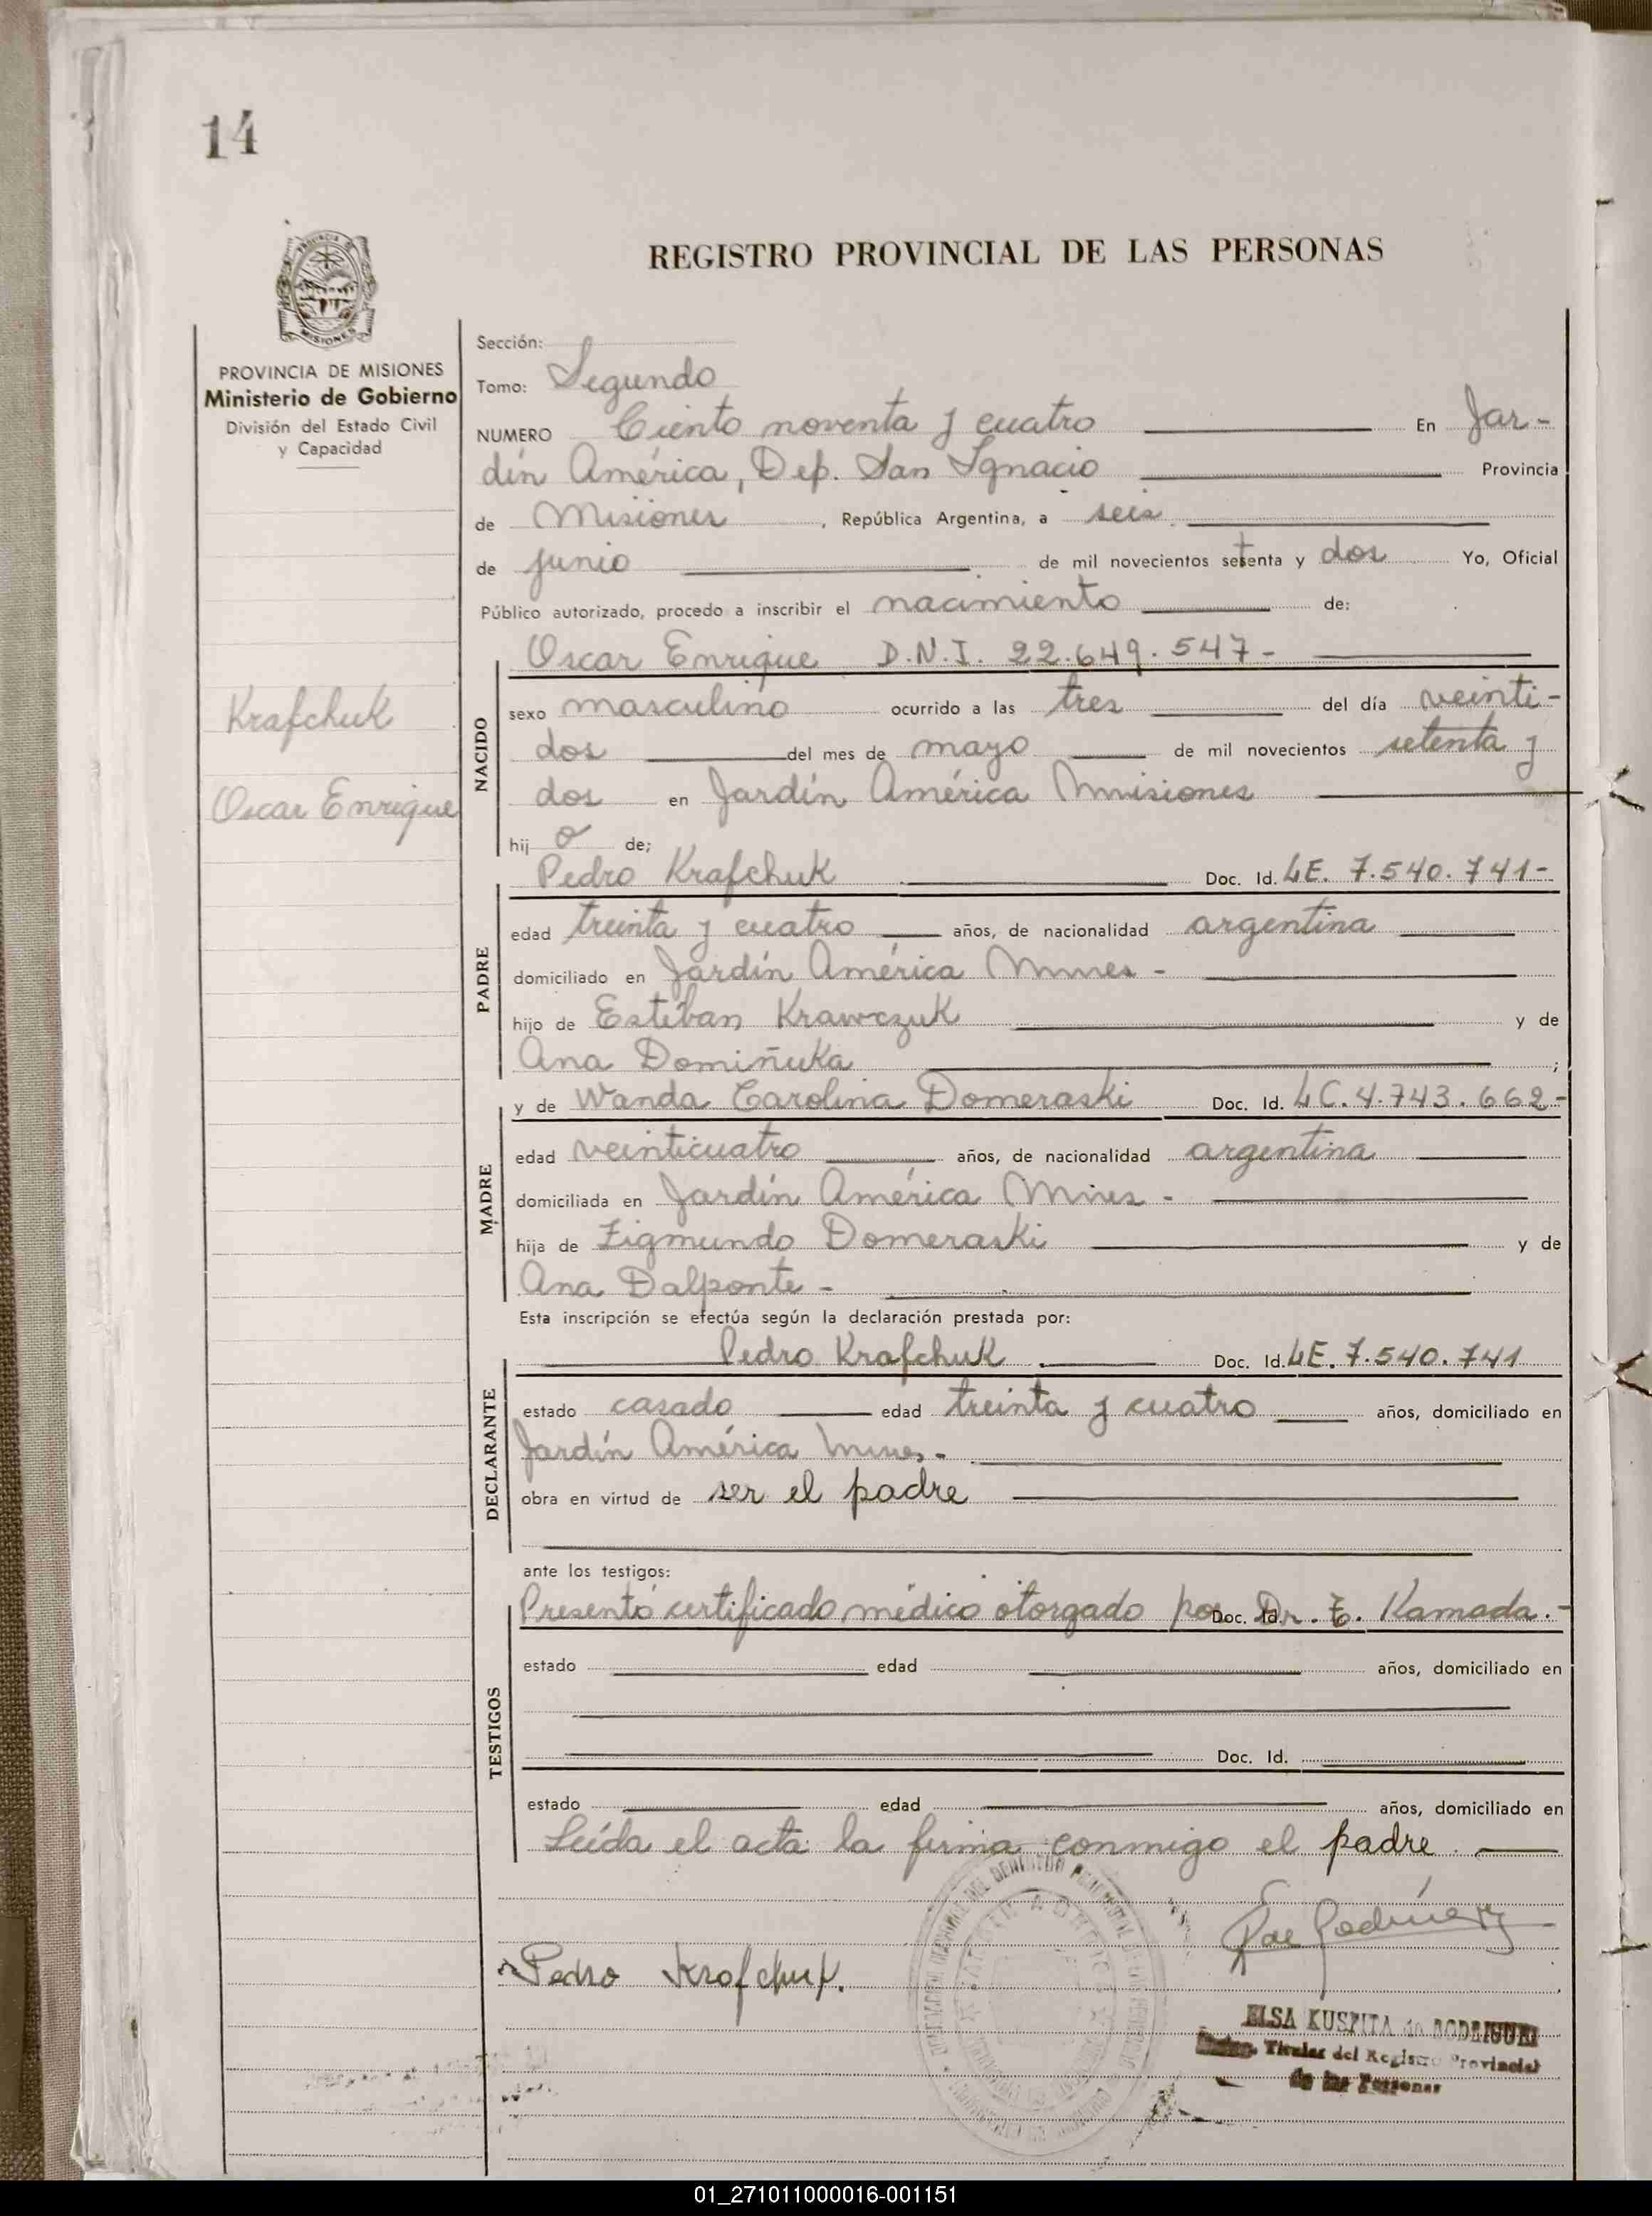 14
REGISTRO PROVINCIAL DE LAS PERSONAS
MISIONES
PROVINCIA DE MISIONES
Ministerio de Gobierno
División del Estado Civil
y Capacidad
Krafchuk
Oscar Enrique
Sección:
Tomo: Segundo
NUMERO Ciento noventa y cuatro En Jar-
dín América, Dep. San Ignacio Provincia
de Misiones, República Argentina, a seis
de junio de mil novecientos setenta y dos Yo, Oficial
Público autorizado, procedo a inscribir el nacimiento de:
Oscar Enrique D.N.I. 22.649.547-
NACIDO
sexo masculino ocurrido a las tres del día veinti-
dos del mes de mayo de mil novecientos setenta y
dos en Jardín América Misiones
hij o de;
Pedro Krafchuk Doc. Id. LE. 7.540.741-
PADRE
edad treinta y cuatro años, de nacionalidad argentina
domiciliado en Jardín América Mnes -
hijo de Estéban Krawczuk y de
Ana Domiñuka ;
y de Wanda Carolina Domeraski Doc. Id. LC. 4.743.662-
MADRE
edad veinticuatro años, de nacionalidad argentina
domiciliada en Jardín América Mnes -
hija de Zigmundo Domeraski y de
Ana Dalponte -
Esta inscripción se efectúa según la declaración prestada por:
Pedro Krafchuk Doc. Id. LE. 7.540.741
DECLARANTE
estado casado edad treinta y cuatro años, domiciliado en
Jardín América Mnes.-
obra en virtud de ser el padre
ante los testigos:
Presentó certificado médico otorgado por Doc. Id. Dr. E. Kamada.-
TESTIGOS
estado edad años, domiciliado en
Doc. Id.
estado edad años, domiciliado en
Leída el acta la firma conmigo el padre.
Pedro Krafchuk.
ELSA KUSZITA de RODRIGUEZ
Titular del Registro Provincial
de las Personas
01_271011000016-001151